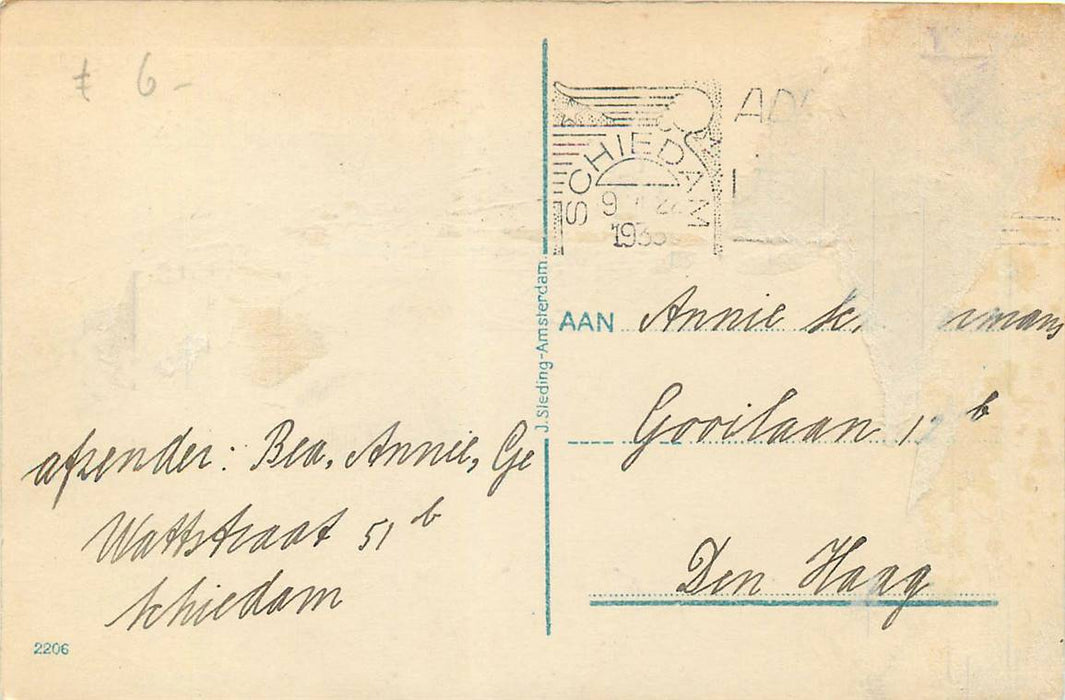 € 6-
SCHIEDAM
1935
J. Sleding-Amsterdam.
AAN Annie
Gooilaan 12 b
Den Haag
afzender: Bea, Annie, Ge
Wattstraat 51 b
Schiedam
2206